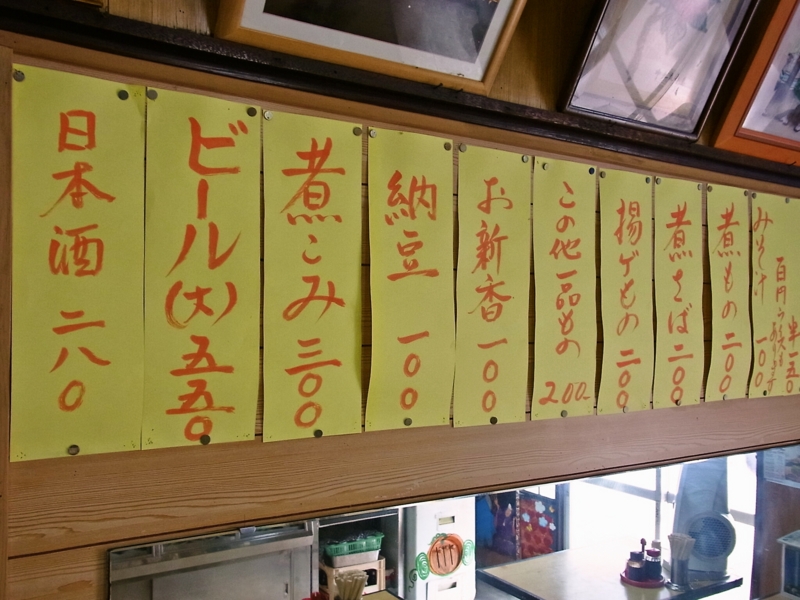 半一五〇
みそ汁 一〇〇
煮もの 二〇〇
煮さば 二〇〇
揚げもの 二〇〇
この他一品もの 200-
お新香 一〇〇
納豆 一〇〇
煮こみ 三〇〇
ビール(大) 五五〇
日本酒 二八〇